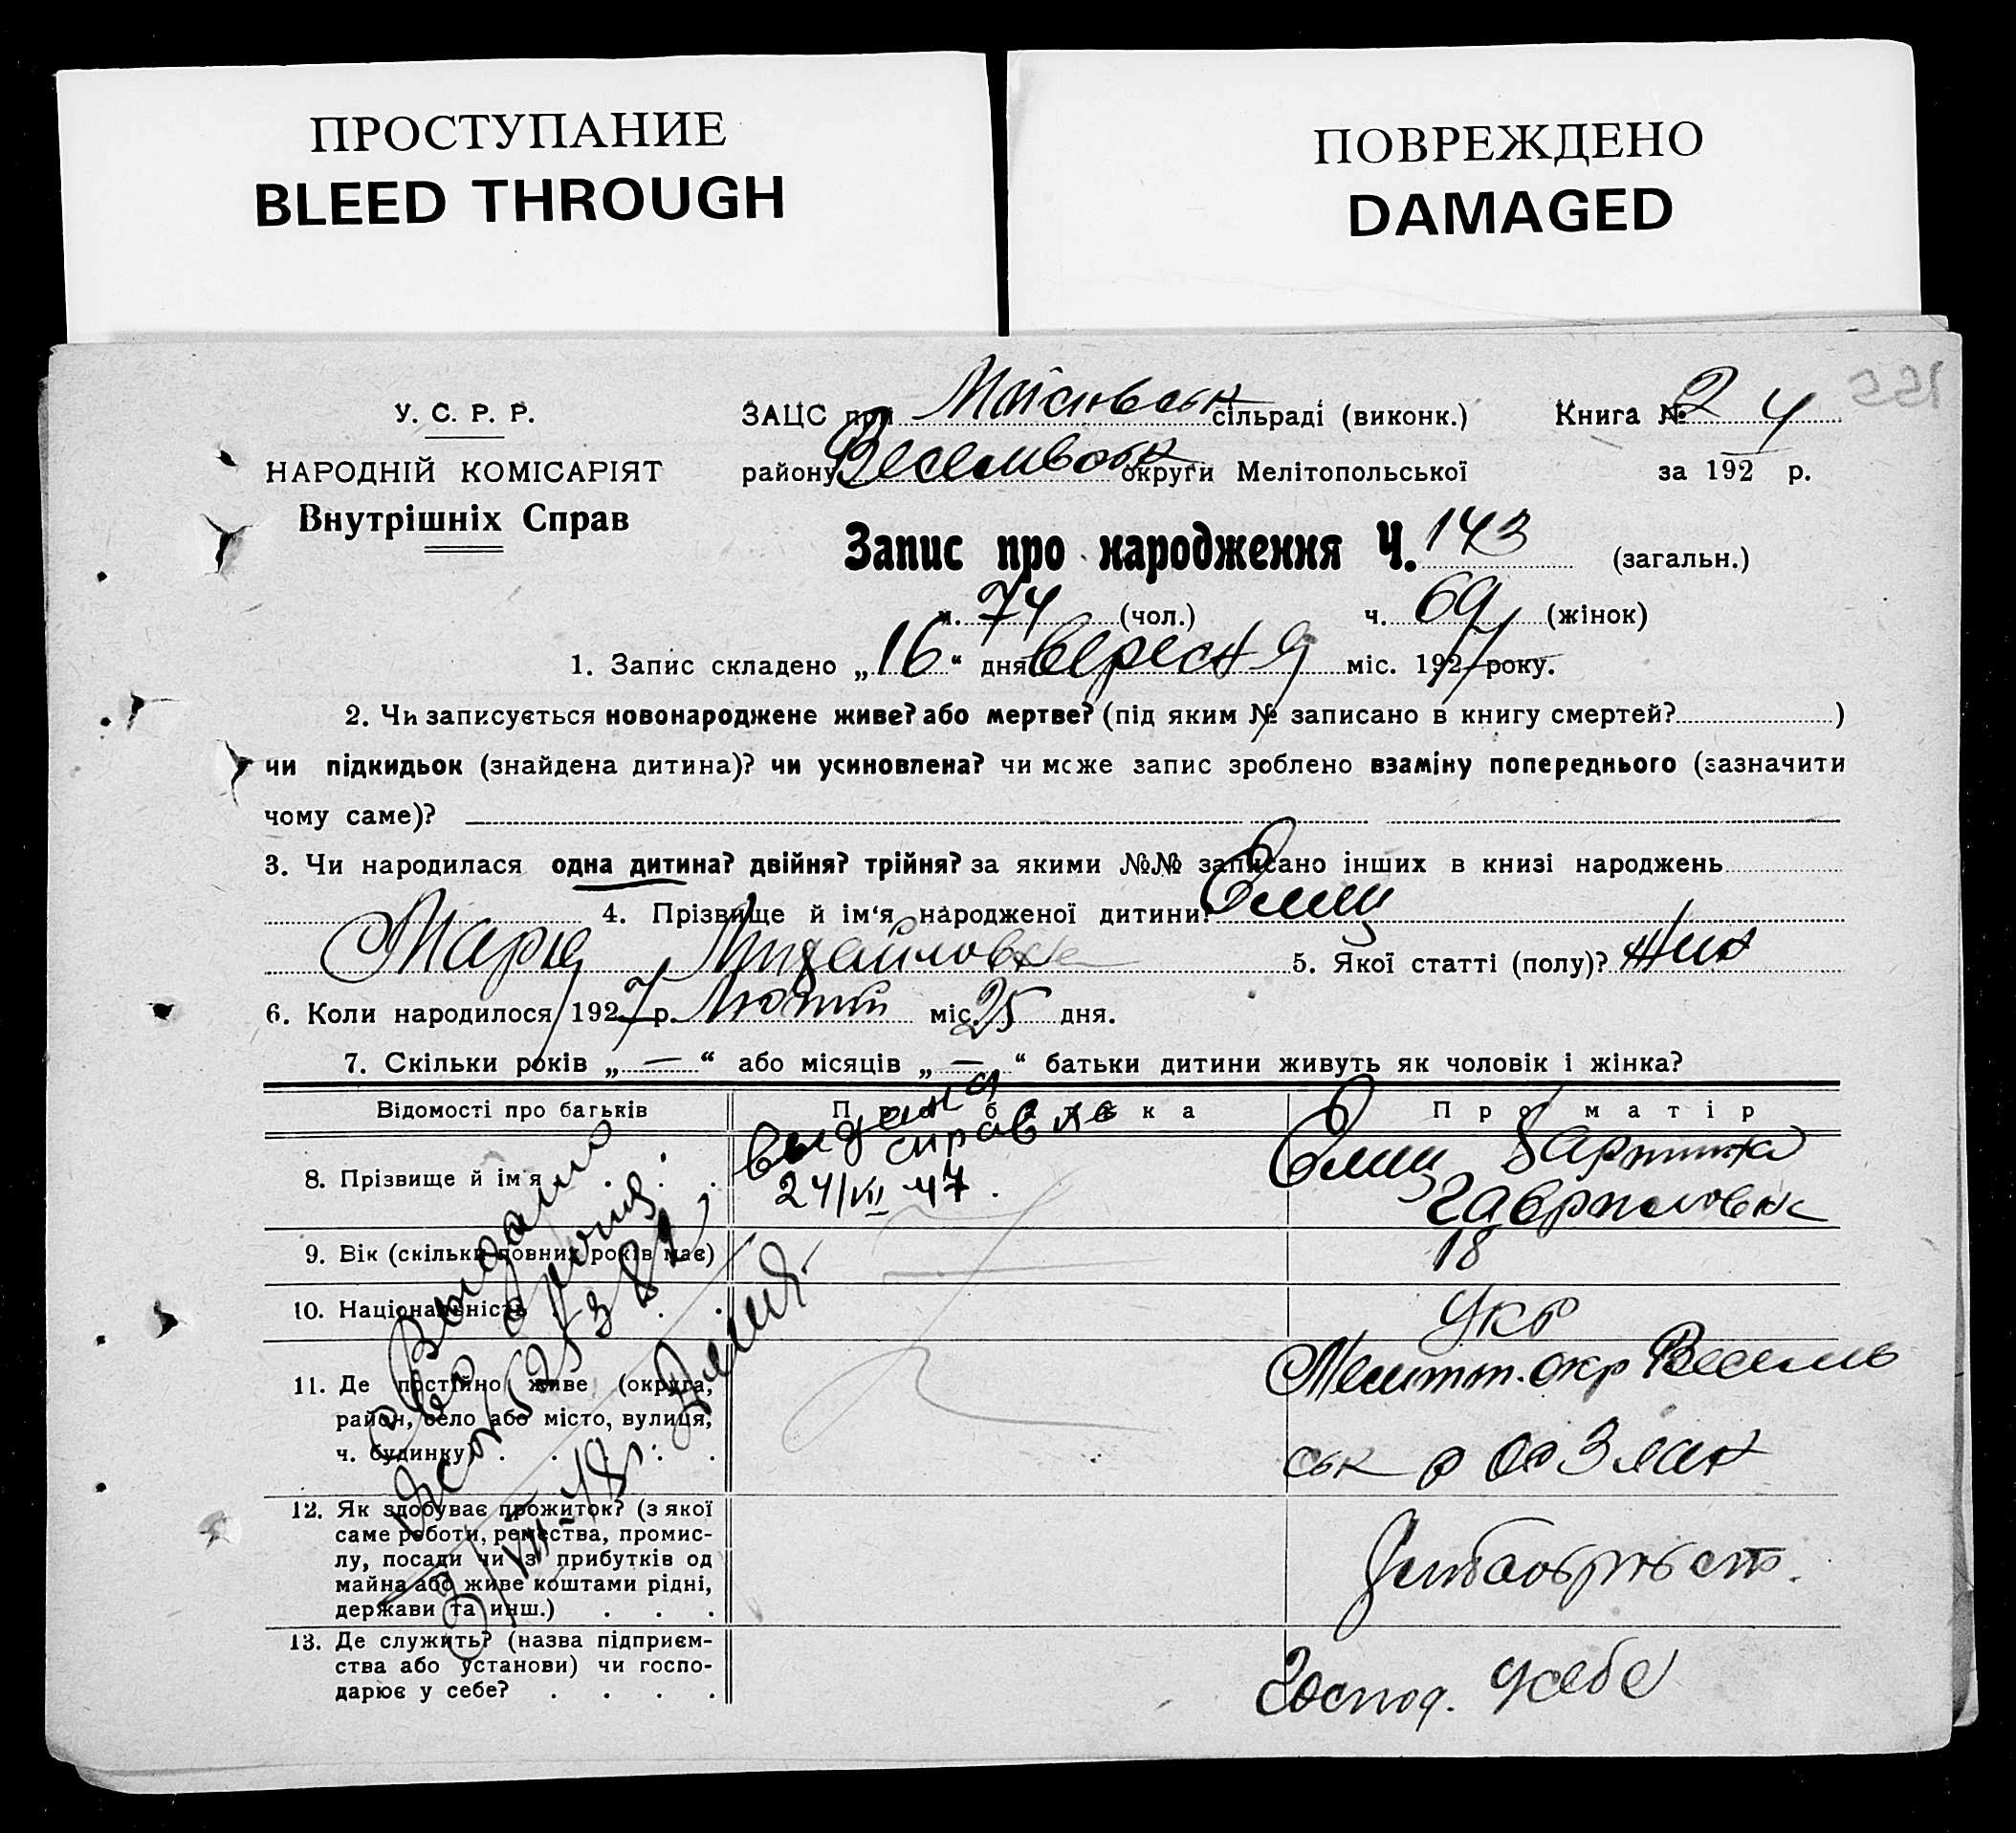 ПРОСТУПАНИЕ
BLEED THROUGH
ПОВРЕЖДЕНО
DAMAGED
У. С. Р. Р.
НАРОДНІЙ КОМІСАРІЯТ
Внутрішніх Справ
ЗАЦС при сільраді (виконк.) Книга № 2 4
району округи Мелітопольської за 192 р.
Запис про народження Ч. 143 (загальн.)
ч. 74 (чол.) ч. 69 (жінок)
1. Запис складено „16“ дня вересня міс. 1927 року.
2. Чи записується новонароджене живе? або мертве? (під яким № записано в книгу смертей? )
чи підкидьок (знайдена дитина)? чи усиновлена? чи може запис зроблено взаміну попереднього (зазначити
чому саме)?
3. Чи народилася одна дитина? двійня? трійня? за якими №№ записано інших в книзі народжень
4. Прізвище й ім‘я народженої дитини?
Марія Михайловна 5. Якої статті (полу)? жин
6. Коли народилося 1927 р. Лютий міс. 25 дня.
7. Скільки років „—“ або місяців „—“ батьки дитини живуть як чоловік і жінка?
Відомості про батьків Про батька Про матір
8. Прізвище й ім‘я
выдана
справка
24/VII 47.
Гавриловн
9. Вік (скільки повних років має) 18
10. Національність Укр
11. Де постійно живе (округа,
район, село або місто, вулиця,
ч. будинку)
Мелитт. окр Весель
ськ р
12. Як здобуває прожиток? (з якої
саме роботи, ремества, промис-
лу, посади чи з прибутків од
майна або живе коштами рідні,
держави та инш.)
13. Де служить? (назва підприєм-
ства або установи) чи госпо-
дарює у себе?
Господ. у себе
Выдано